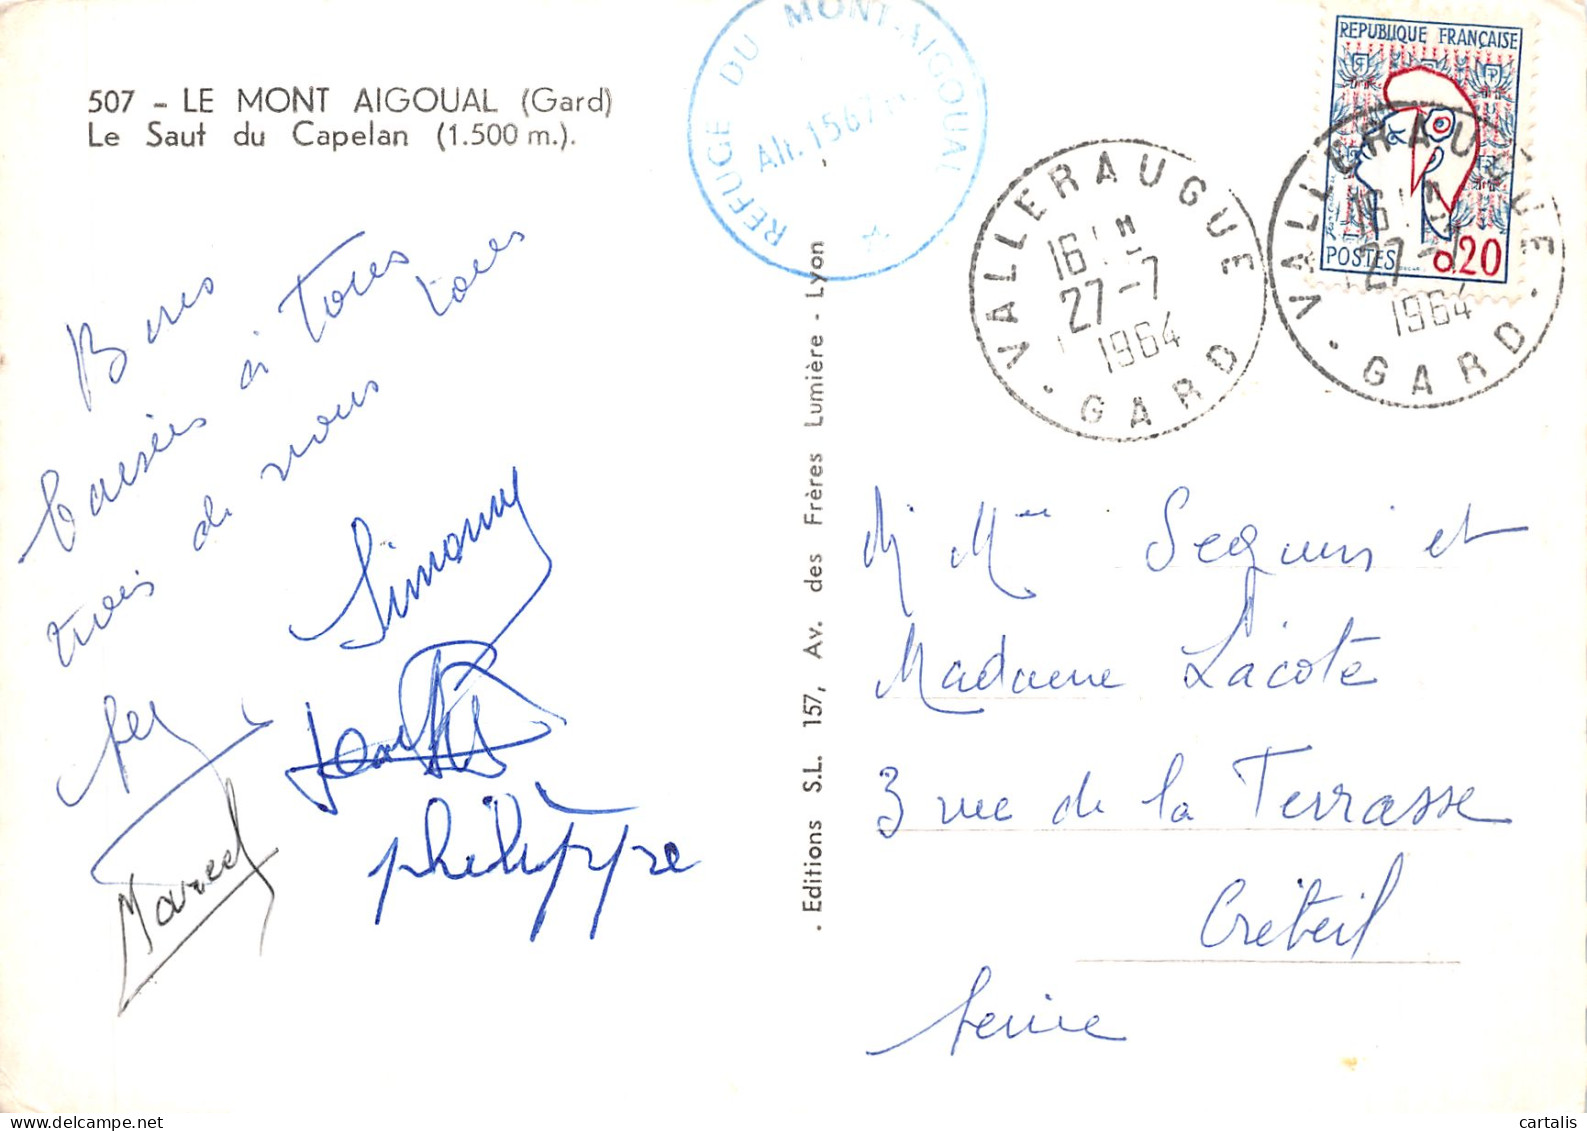 507 - LE MONT AIGOUAL (Gard)
Le Saut du Capelan (1.500 m.).
REFUGE DU MONT-AIGOUAL
Alt. 1567 m
REPUBLIQUE FRANÇAISE
POSTES 0,20
VALLERAUGUE
16 H
27-7
1964
GARD
VALLERAUGUE
16 H
27-7
1964
GARD
Bons
baisers à tous
trois de nous tous
Simonny
Jean
Marcel
philippe
. Editions S.L. 157, Av. des Frères Lumière - Lyon
M Mme Seguin et
Madame Lacote
3 rue de la Terrasse
Créteil
Seine
cartalis